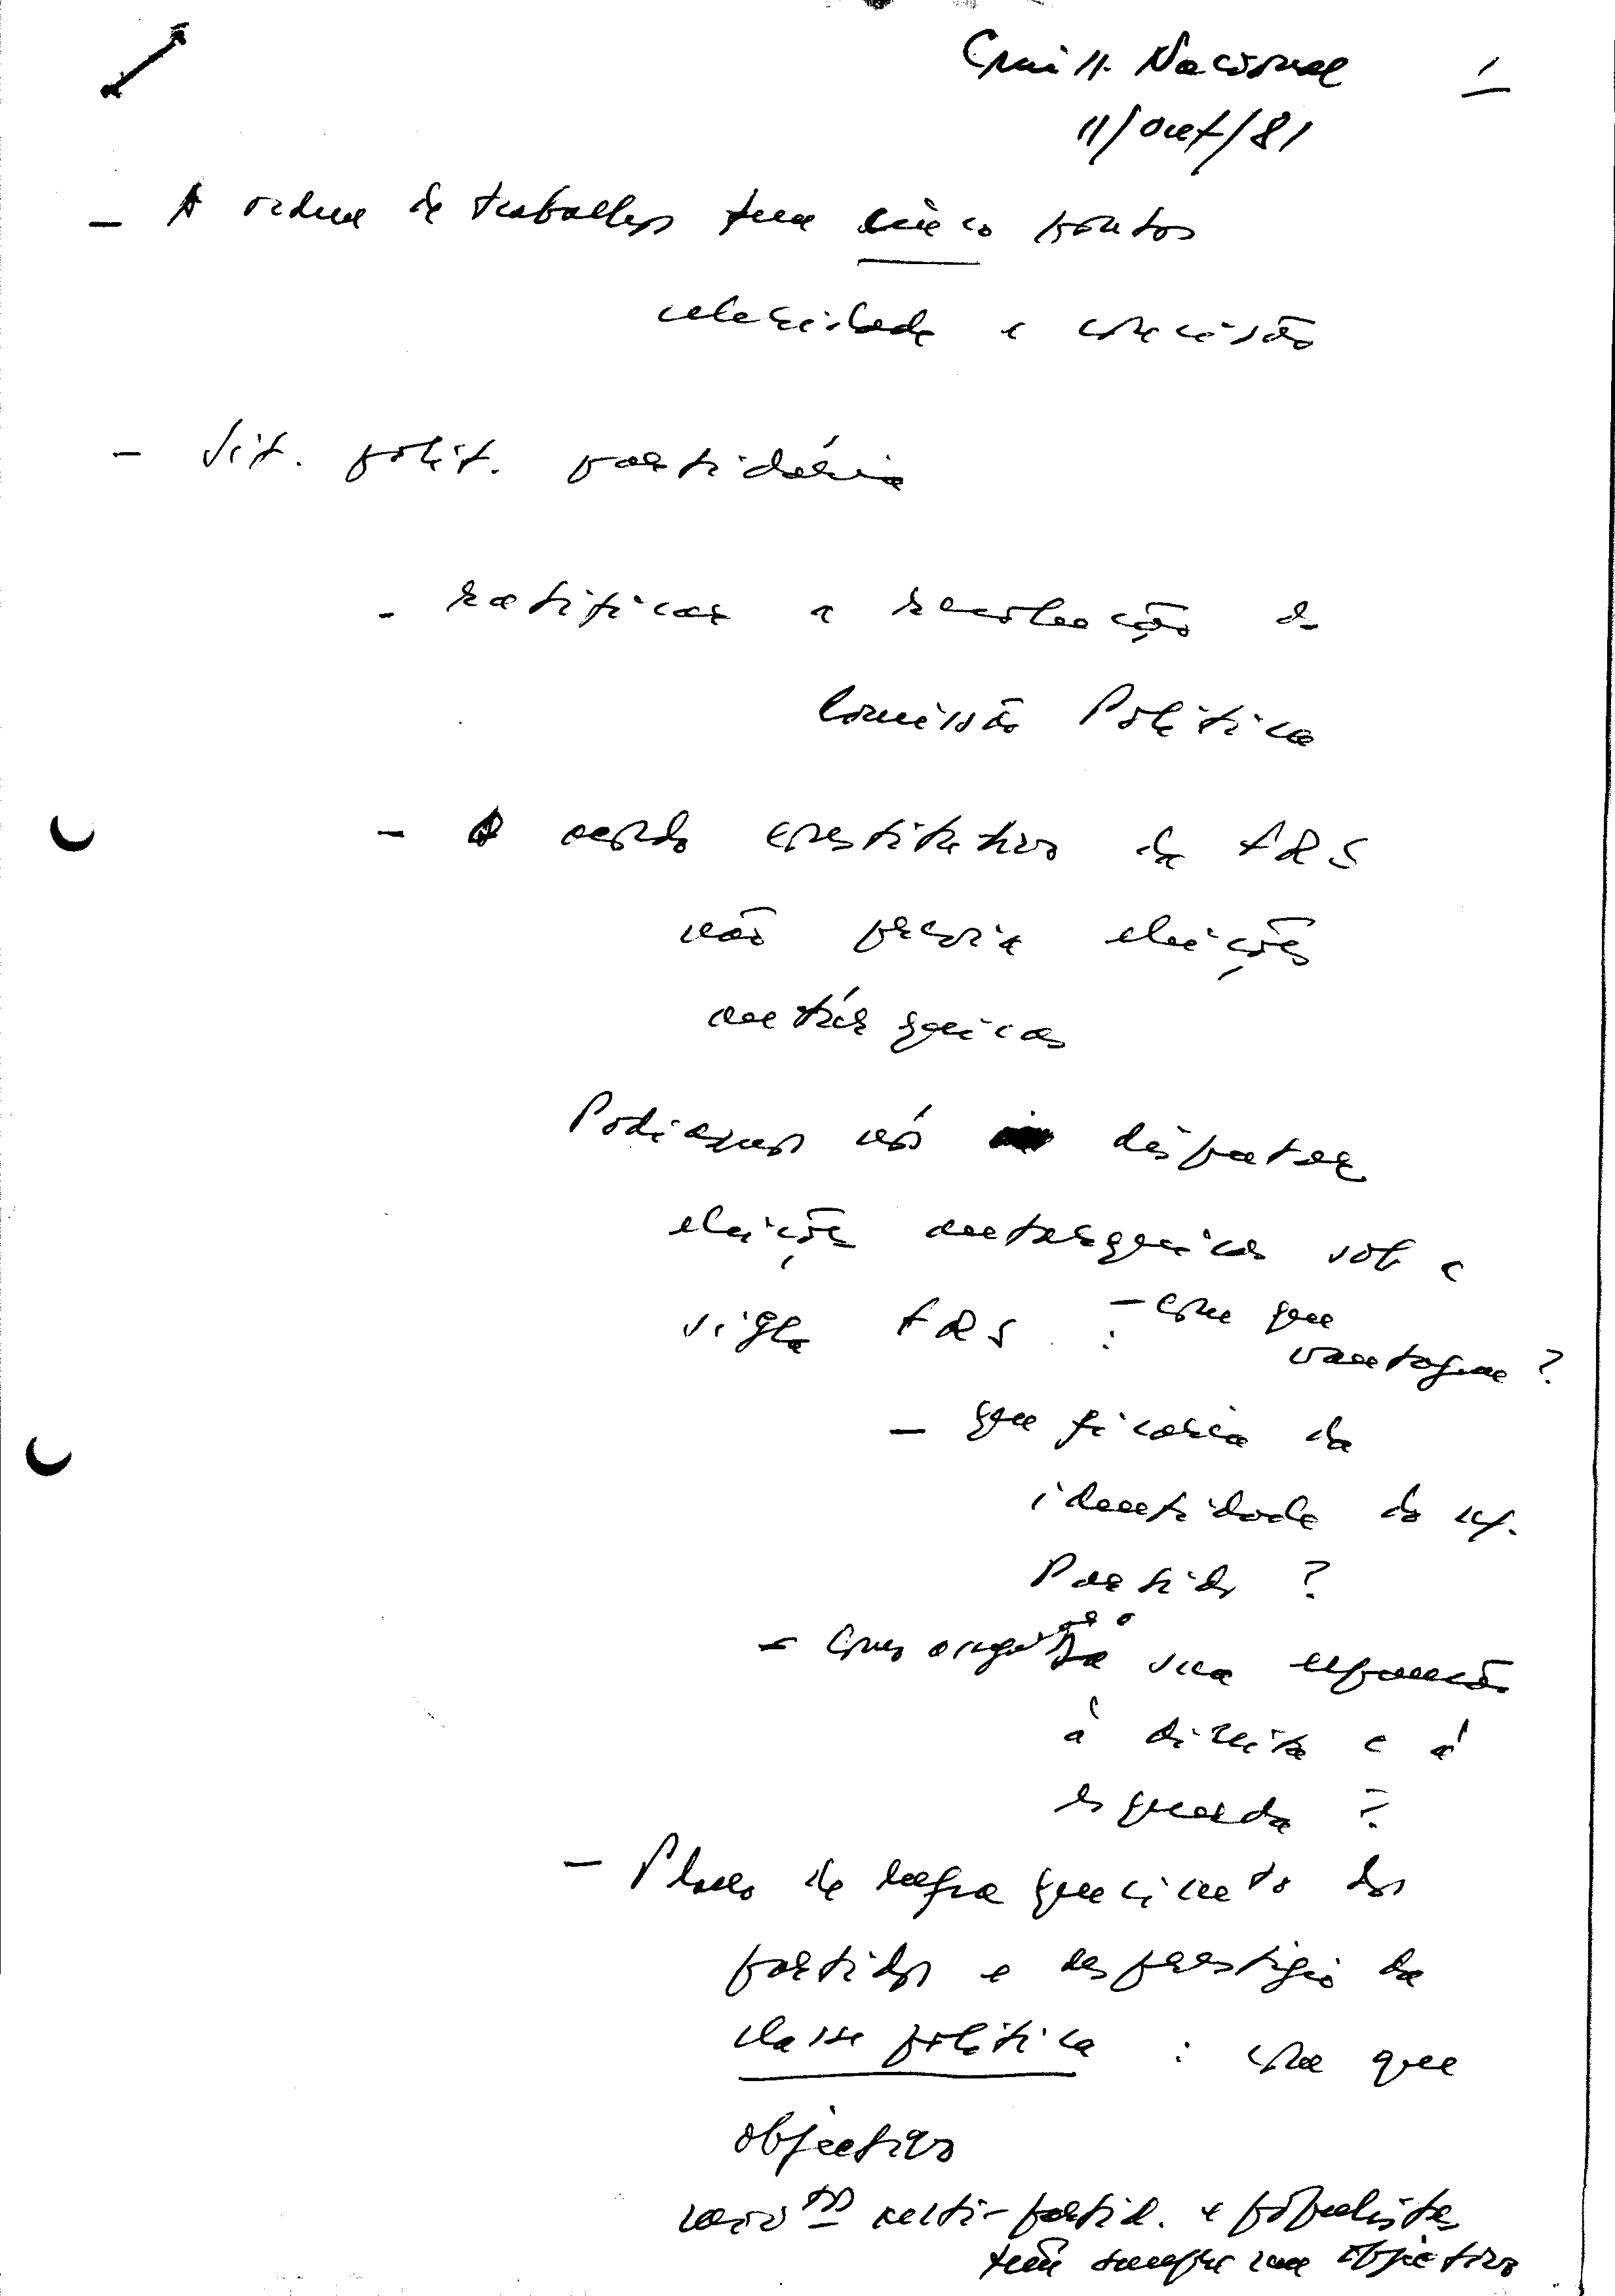 Comiss. Nacional 1
11/Out/81
– A ordem de trabalhos tem cinco pontos
celeridade e concisão
– Sit. polit. partidária
– ratificar a resolução da
Comissão Política
– O acordo constitutivo da FRS
não previa eleições
autárquicas
Podíamos nós disputar
eleições autárquicas sob a
sigla FRS : – com que
vantagem ?
– que ficaria da
identidade do n/.
Partido ?
– sua expansão
à direita e à
esquerda ?
– Plano de enfraquecimento dos
partidos e desprestígio da
classe política : com que
objectivo
anti-partid. e populistas
têm sempre um objectivo